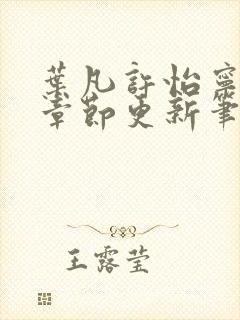 葉凡許怡寧
章節更新筆
王露瑩